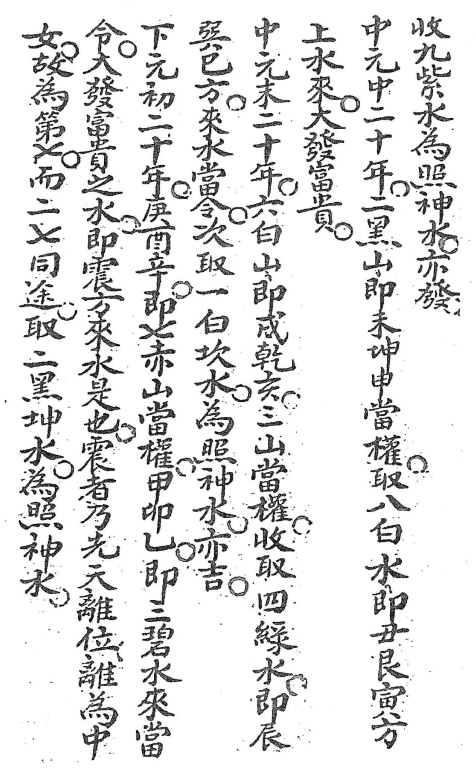 收九紫水為照神水亦發
中元中二十年二黑山即未坤申當權取八白水即丑艮寅方
上水來大發富貴
中元末二十年六白山即戌乾亥三山當權收取四綠水即辰
巽巳方來水當令次取一白坎水為照神水亦吉
下元初二十年庚酉辛即七赤山當權甲卯乙即三碧水來當
令大發富貴之水即震方來水是也震者乃先天離位離為中
女故為第七而二七同途取二黑坤水為照神水